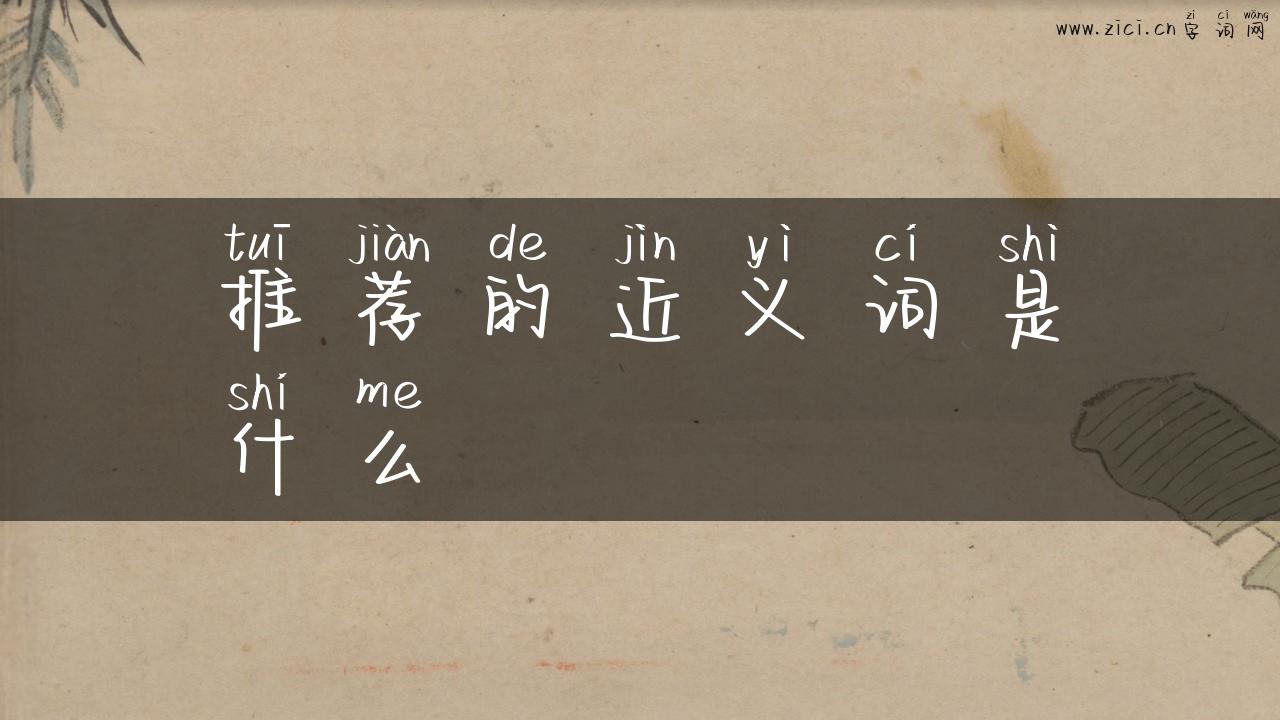 zì cí wǎng
www.zici.cn 字词网
tuī jiàn de jìn yì cí shì
推荐的近义词是
shí me
什么